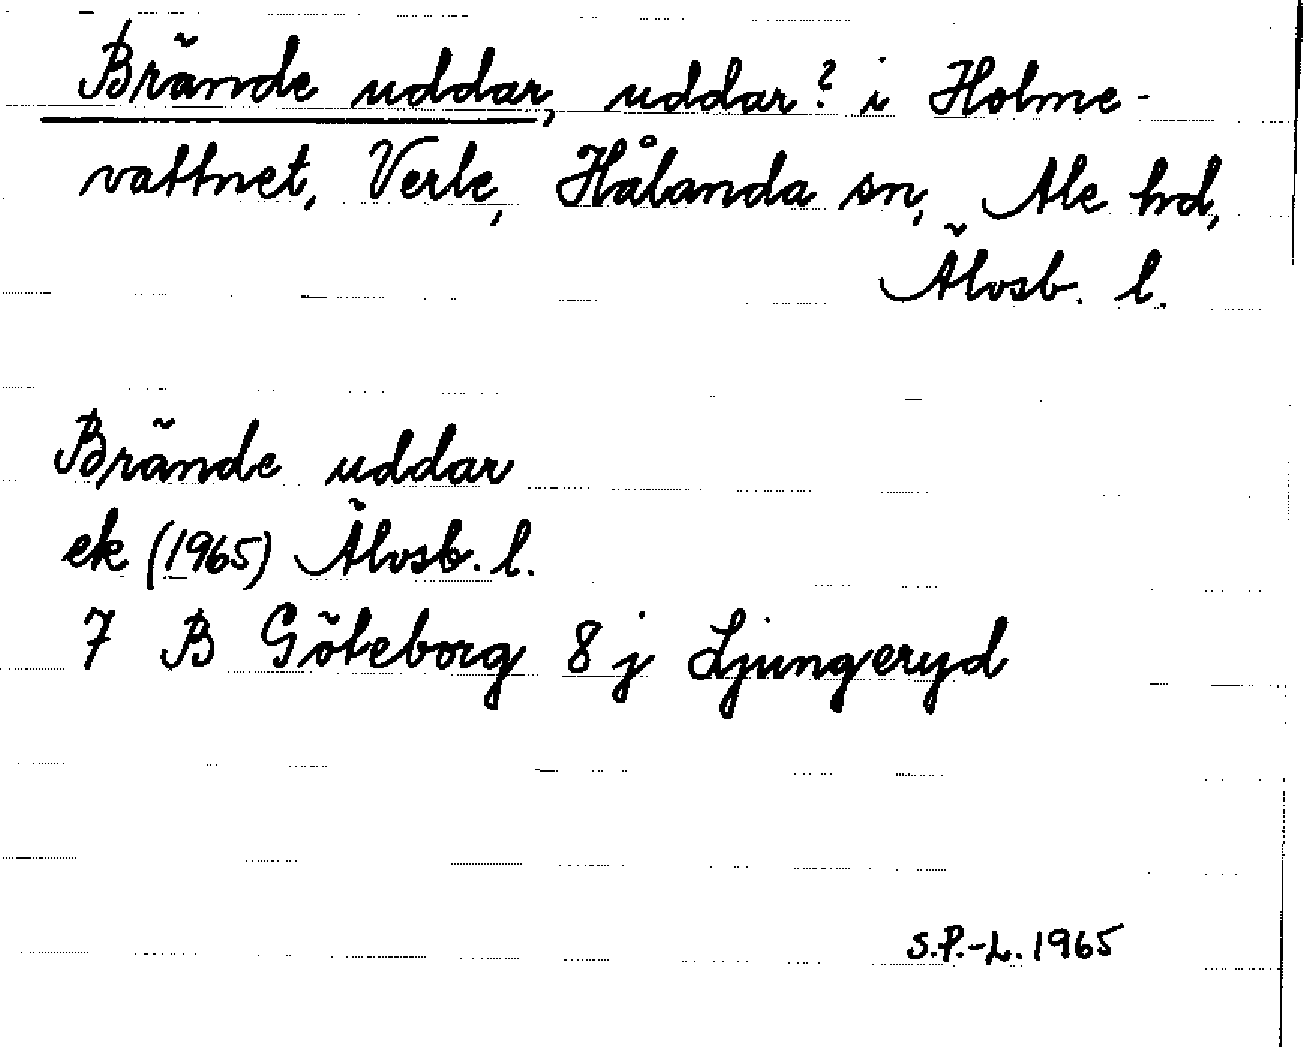 Brände uddar, uddar? i Holme-
vattnet, Verle, Hålanda sn, Ale hd,
Älvsb. l.
Brände uddar
ek (1965) Älvsb. l.
7 B Göteborg 8 j Ljungeryd
S.P.-L. 1965